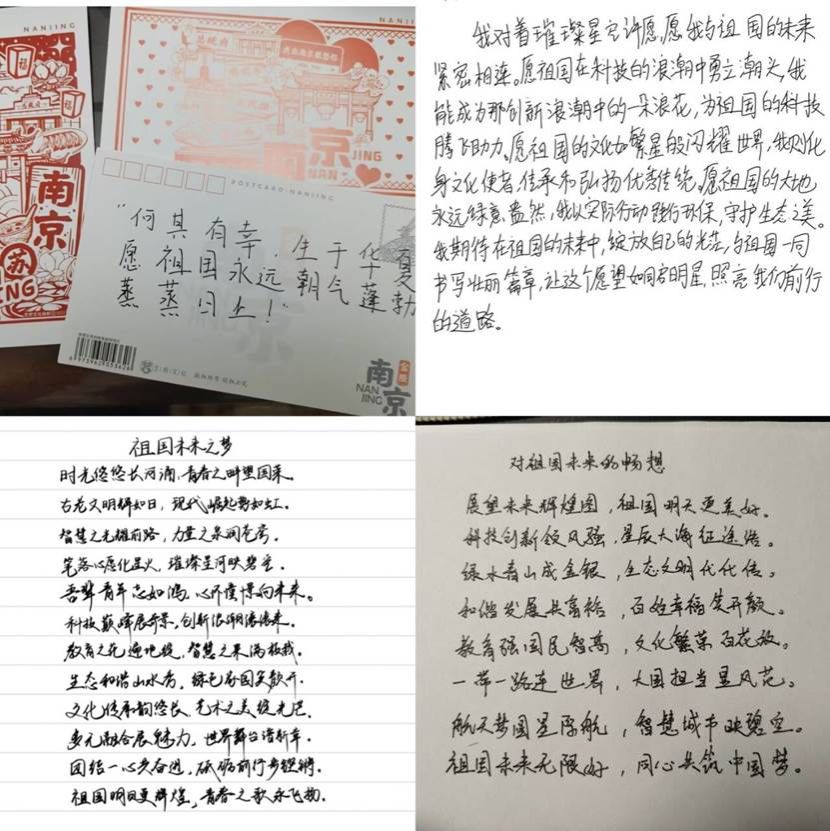 NANJING
福
南京
苏
NANJING
南京
NAN
JING
POSTCARD·NANJING
“何其有幸，生于华夏
愿祖国永远朝气蓬勃
蒸蒸日上！”
南京
NAN
JING
我对着璀璨星空许愿，愿我与祖国的未来
紧密相连。愿祖国在科技的浪潮中勇立潮头，我
能成为那创新浪潮中的一朵浪花，为祖国的科技
腾飞助力。愿祖国的文化如繁星般闪耀世界，我则化
身文化使者，传承和弘扬优秀传统。愿祖国的大地
永远绿意盎然，我以实际行动践行环保，守护生态之美。
我期待在祖国的未来中，绽放自己的光芒，与祖国一同
书写壮丽篇章，让这个愿望如同启明星，照亮我们前行
的道路。
祖国未来之梦
时光悠悠长河涌，青春之畔望国来。
古老文明辉如日，现代崛起势如虹。
智慧之光耀前路，力量之泉润苍穹。
笔落心愿化星火，璀璨星河映碧空。
吾辈青年志如鸿，心怀憧憬向未来。
科技巅峰展奇景，创新浪潮滚滚来。
教育之花遍地绽，智慧之果满枝栽。
生态和谐山水秀，绿色家园笑颜开。
文化传承韵悠长，艺术之美绽光芒。
多元融合展魅力，世界舞台谱新章。
团结一心共奋进，砥砺前行步铿锵。
祖国明日更辉煌，青春之歌永飞扬。
对祖国未来的畅想
展望未来辉煌图，祖国明天更美好。
科技创新领风骚，星辰大海征途浩。
绿水青山成金银，生态文明代代传。
和谐发展共富裕，百姓幸福笑开颜。
教育强国民智高，文化繁荣百花放。
一带一路连世界，大国担当显风范。
航天梦圆星际航，智慧城市映碧空。
祖国未来无限好，同心共筑中国梦。